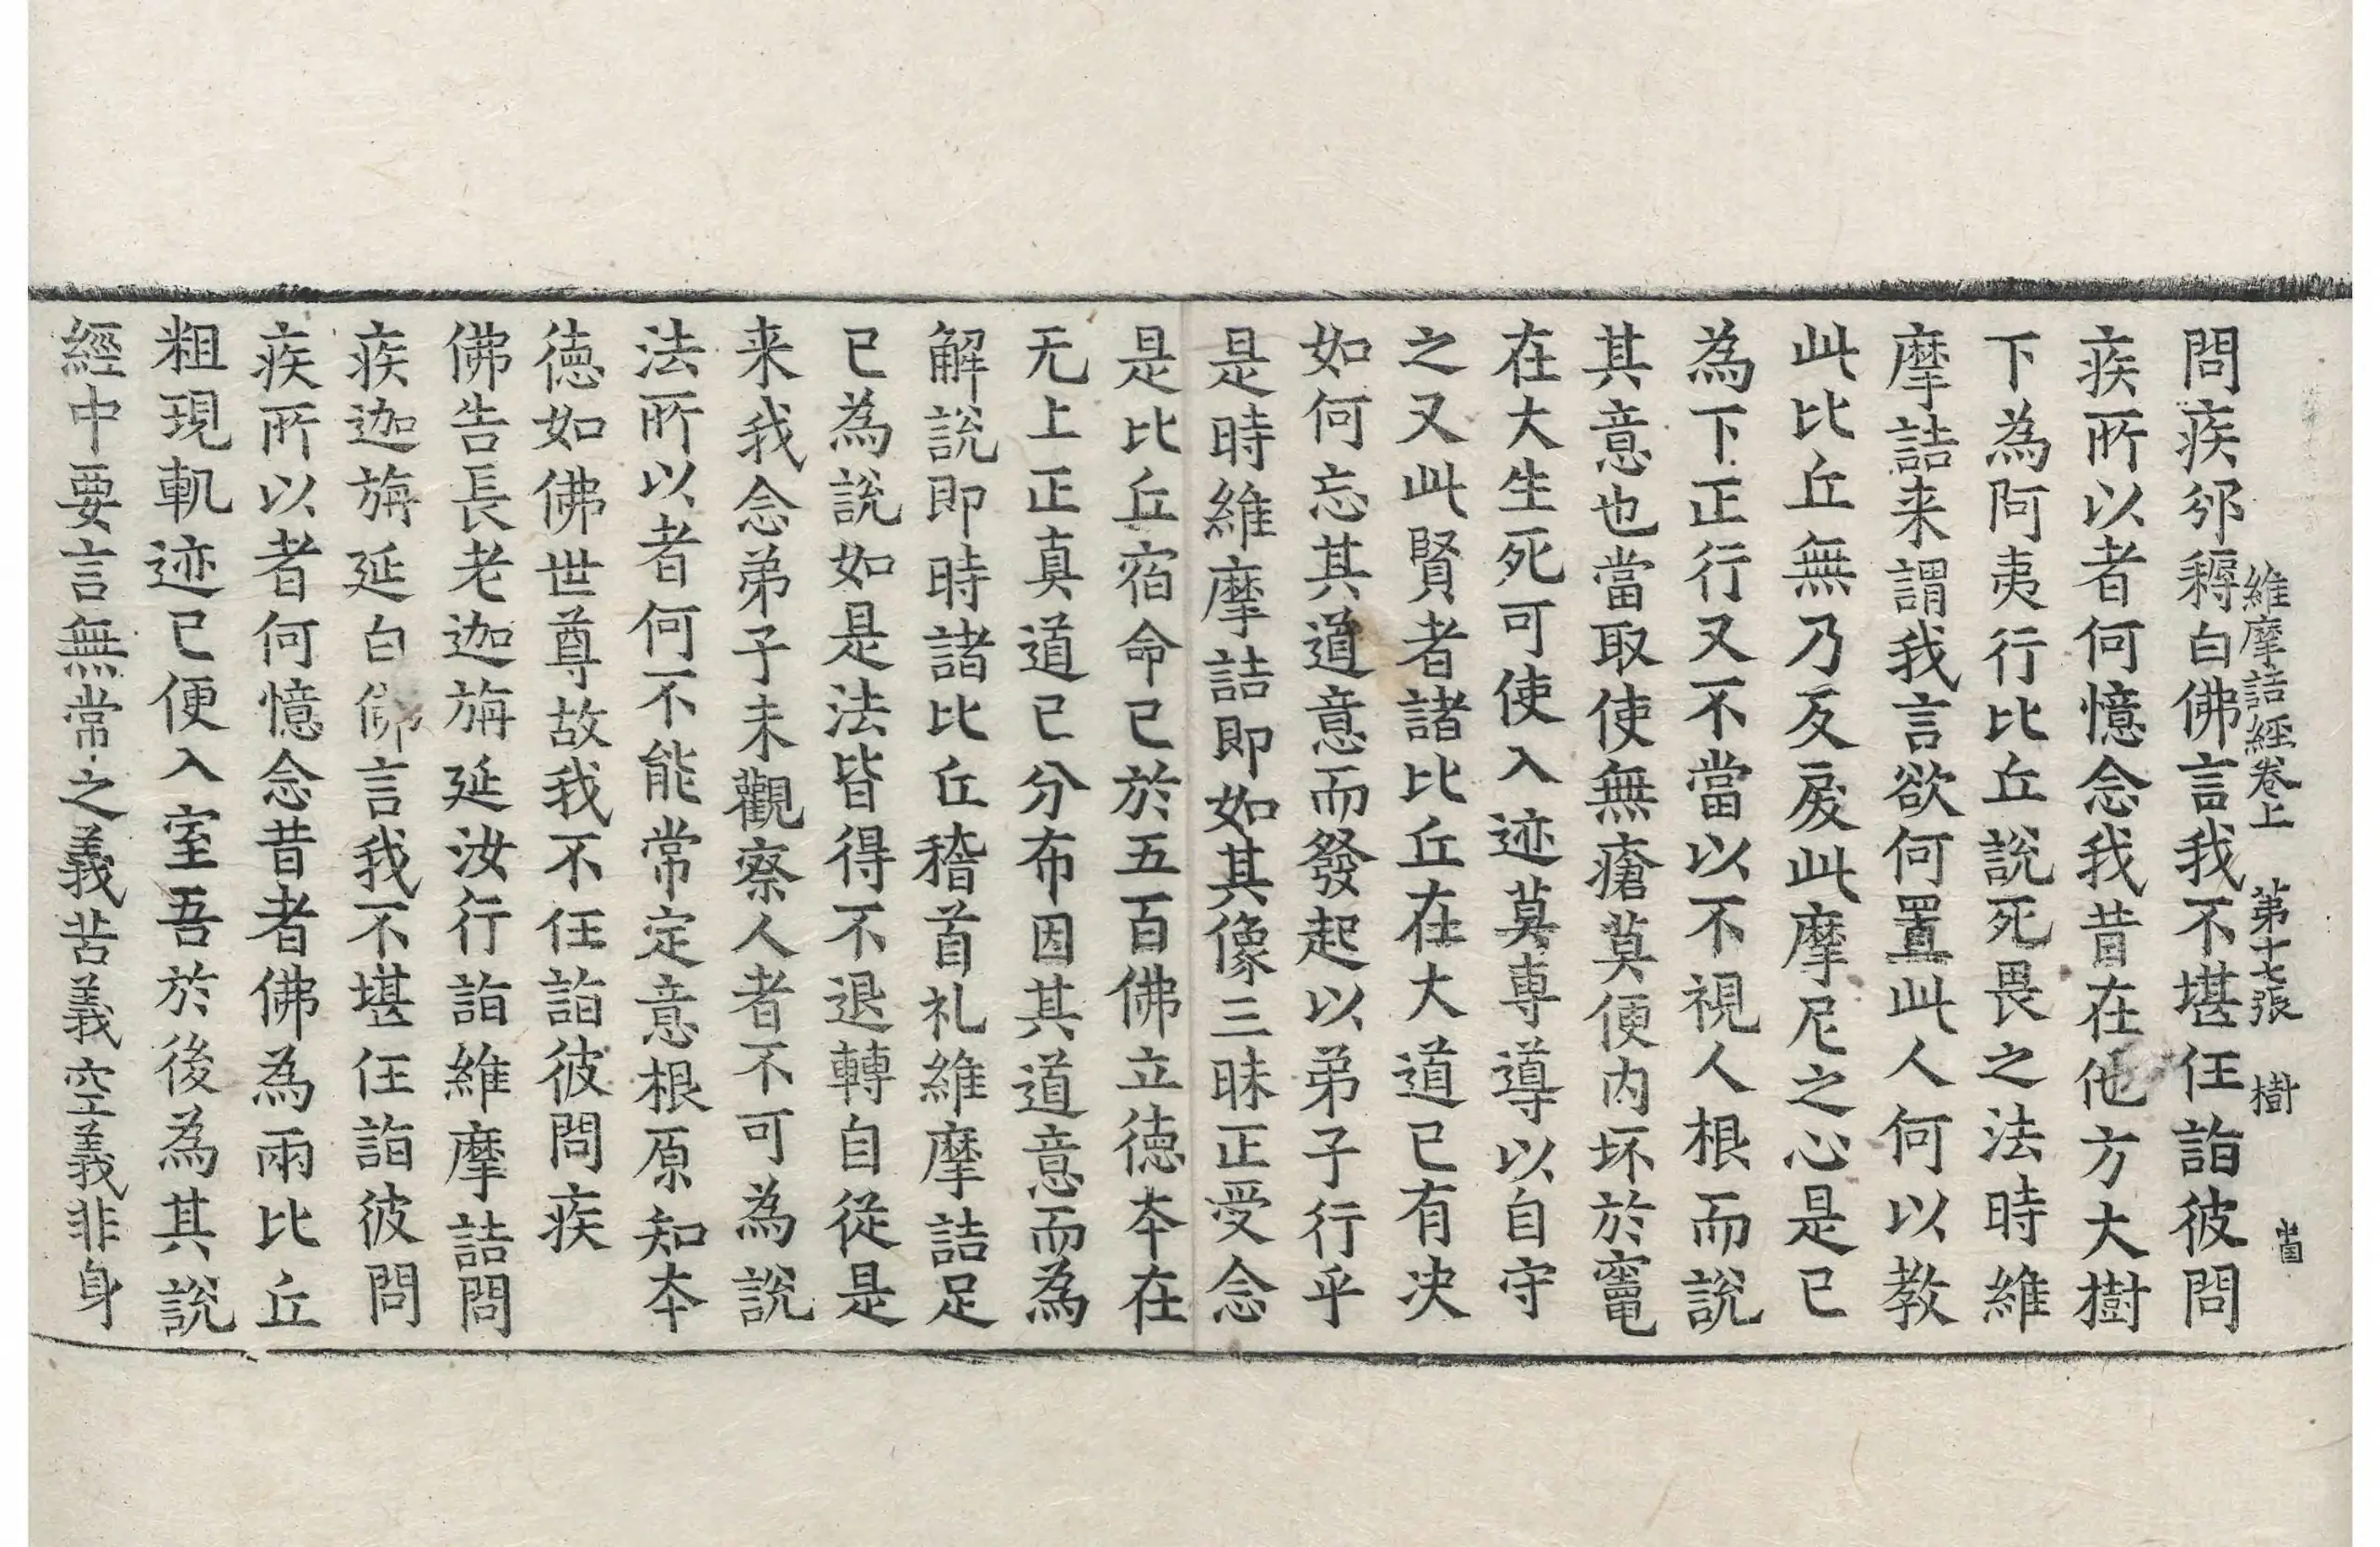 維摩詰經卷上 第十七張 樹
問疾邠耨白佛言我不堪任詣彼問
疾所以者何憶念我昔在他方大樹
下為阿夷行比丘說死畏之法時維
摩詰来謂我言欲何置此人何以教
此比丘無乃反戾此摩尼之心是已
為下正行又不當以不視人根而說
其意也當取使無瘡莫便內坏於竈
在大生死可使入迹莫専導以自守
之又此賢者諸比丘在大道已有决
如何忘其道意而發起以弟子行乎
是時維摩詰即如其像三昧正受念
是比丘宿命已於五百佛立德夲在
无上正真道已分布因其道意而為
解說即時諸比丘稽首礼維摩詰足
已為說如是法皆得不退轉自從是
来我念弟子未觀察人者不可為說
法所以者何不能常定意根原知夲
德如佛世尊故我不任詣彼問疾
佛告長老迦旃延汝行詣維摩詰問
疾迦旃延白佛言我不堪任詣彼問
疾所以者何憶念昔者佛為兩比丘
粗現軌迹已便入室吾於後為其說
經中要言無常之義苦義空義非身